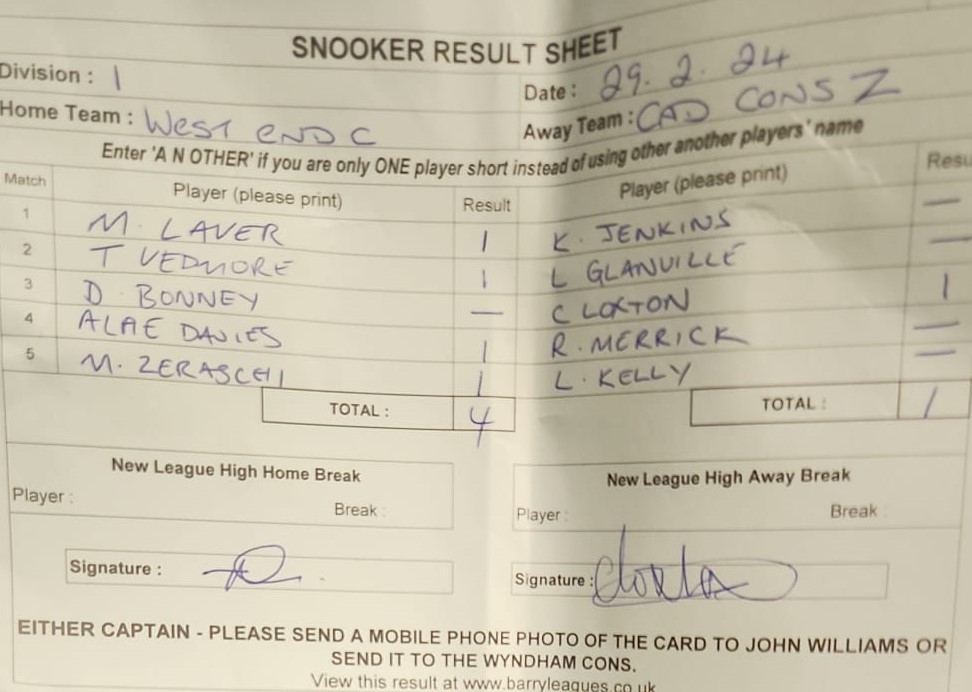 SNOOKER RESULT SHEET
Division : 1 Date : 29.2.24
Home Team : WEST END C Away Team : CAD CONS Z
Enter 'A N OTHER' if you are only ONE player short instead of using other another players' name
Match Player (please print) Result Player (please print) Resu
1 M. LAVER 1 K. JENKINS —
2 T VEDMORE 1 L GLANVILLE —
3 D BONNEY — C LOXTON 1
4 ALAE DAVIES 1 R. MERRICK —
5 M. ZERASCHI 1 L. KELLY —
TOTAL : 4 TOTAL : 1
New League High Home Break New League High Away Break
Player : Break : Player : Break :
Signature : Signature : Cloxton
EITHER CAPTAIN - PLEASE SEND A MOBILE PHONE PHOTO OF THE CARD TO JOHN WILLIAMS OR
SEND IT TO THE WYNDHAM CONS.
View this result at www.barryleagues.co.uk